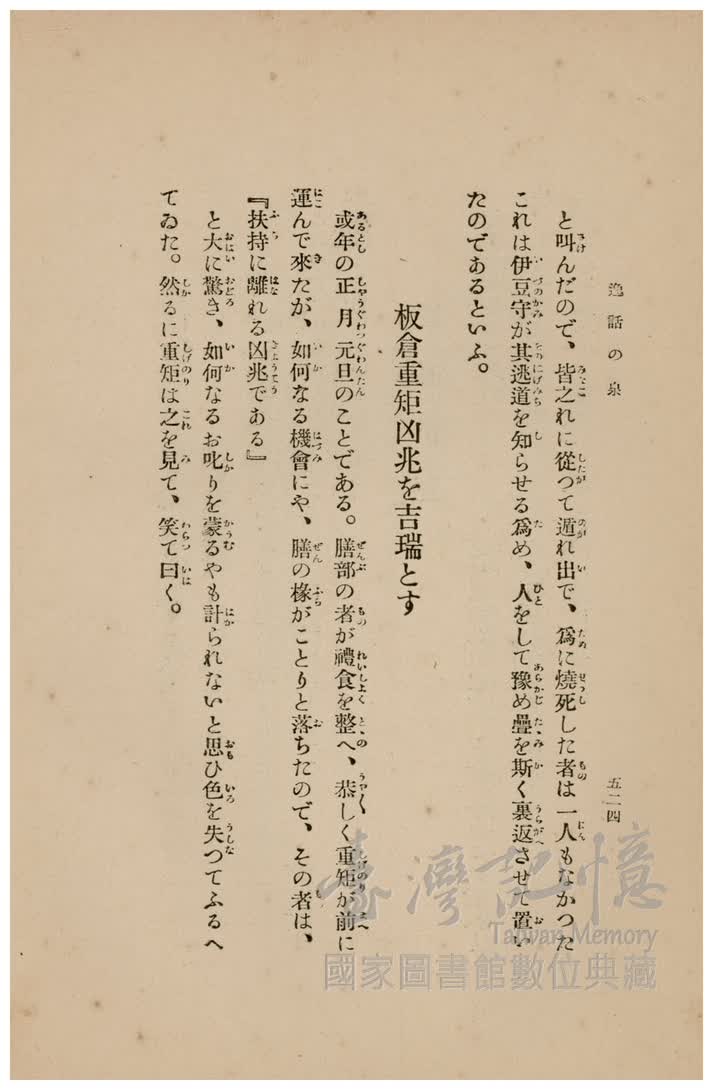 逸話の泉
五二四
と叫んだので、皆之れに從つて遁れ出で、爲に燒死した者は一人もなかつた
これは伊豆守が其逃道を知らせる爲め、人をして豫め疊を斯く裏返させて置い
たのであるといふ。
板倉重矩凶兆を吉瑞とす
或年の正月元旦のことである。膳部の者が禮食を整へ、恭しく重矩が前に
運んで來たが、如何なる機會にや、膳の椽がことりと落ちたので、その者は、
『扶持に離れる凶兆である』
と大に驚き、如何なるお叱りを蒙るやも計られないと思ひ色を失つてふるへ
てゐた。然るに重矩は之を見て、笑て曰く。
臺灣記憶
Taiwan Memory
國家圖書館數位典藏